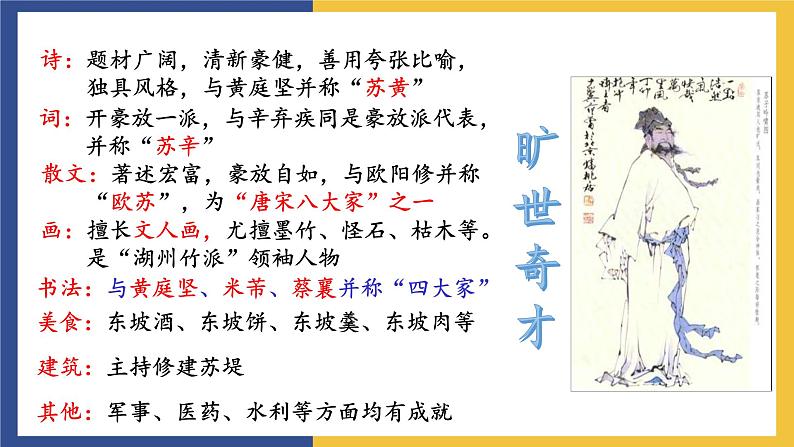 诗：题材广阔，清新豪健，善用夸张比喻，
独具风格，与黄庭坚并称“苏黄”
词：开豪放一派，与辛弃疾同是豪放派代表，
并称“苏辛”
散文：著述宏富，豪放自如，与欧阳修并称
“欧苏”，为“唐宋八大家”之一
画：擅长文人画，尤擅墨竹、怪石、枯木等。
是“湖州竹派”领袖人物
书法：与黄庭坚、米芾、蔡襄并称“四大家”
美食：东坡酒、东坡饼、东坡羹、东坡肉等
建筑：主持修建苏堤
其他：军事、医药、水利等方面均有成就
旷世奇才
一点
浩然
气
快哉